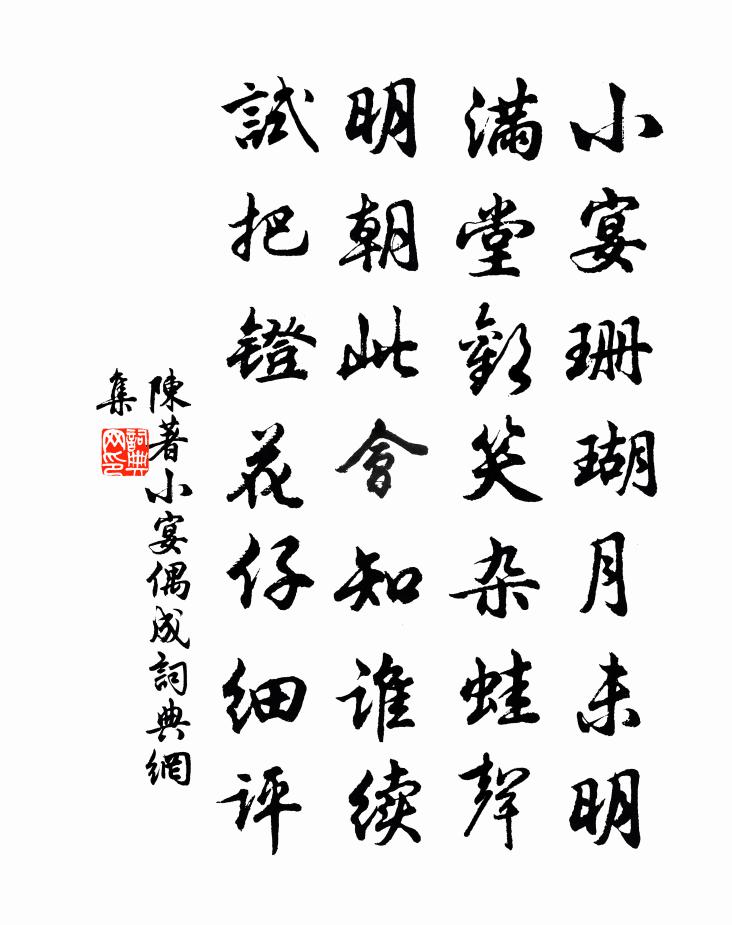 小宴珊瑚月未明
滿堂歡笑杂蛙聲
明朝此會知誰續
試把鐙花仔细評
陳著小宴偶成詞典網
集
詞典网印